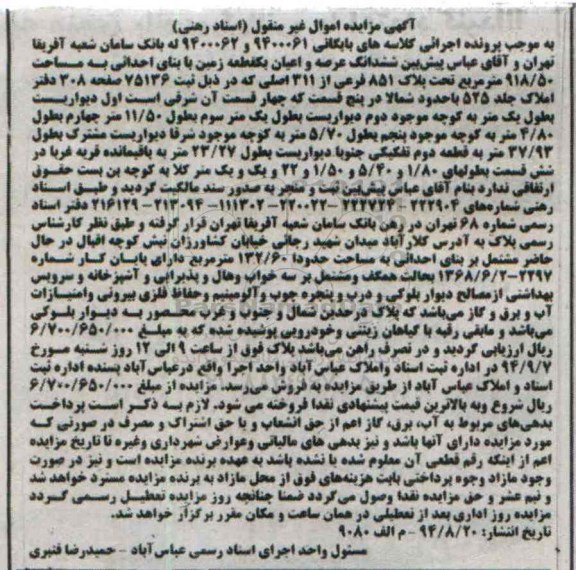 آگهی مزایده اموال غیر منقول (اسناد رهنی)
به موجب پرونده اجرائی کلاسه های بایگانی ۹۴۰۰۰۶۱ و ۹۴۰۰۰۶۲ له بانک سامان شعبه آفریقا
تهران و آقای عباس پیش‌بین ششدانگ عرصه و اعیان یکقطعه زمین با بنای احداثی به مساحت
۹۱۸/۵۰ مترمربع تحت پلاک ۸۵۱ فرعی از ۳۱۱ اصلی که در ذیل ثبت ۷۵۱۳۶ صفحه ۳۰۸ دفتر
املاک جلد ۵۲۵ باحدود شمالا در پنج قسمت که چهار قسمت آن شرقی است اول دیواریست
بطول یک متر به کوچه موجود دوم دیواریست بطول یک متر سوم بطول ۱۱/۵۰ متر چهارم بطول
۴/۸۰ متر به کوچه موجود پنجم بطول ۵/۷۰ متر به کوچه موجود شرقا دیواریست مشترک بطول
۳۷/۹۳ متر به قطعه دوم تفکیکی جنوبا دیواریست بطول ۲۳/۲۷ متر به باقیمانده غربا در
شش قسمت بطولهای ۱/۸۰ و ۵/۴۰ و ۱/۵۰ و ۲۲ و یک و یک متر کلا به کوچه بن بست حقوق
ارتفاقی ندارد بنام آقای عباس پیش‌بین ثبت و منجر به صدور سند مالکیت گردید و طبق اسناد
رهنی شماره‌های ۲۲۲۹۰۴ -۲۲۲۷۲۴ -۲۲۰۰۲۲ -۱۱۱۳۰۲ -۲۱۳۰۹۴ -۲۱۶۱۲۹ دفتر اسناد
رسمی شماره ۶۸ تهران در رهن بانک سامان شعبه آفریقا تهران قرار گرفته و طبق نظر کارشناس
رسمی پلاک به آدرس کلارآباد میدان شهید رجائی خیابان کشاورزان نبش کوچه اقبال در حال
حاضر مشتمل بر بنای احداثی به مساحت حدودا ۱۳۲/۶۰ مترمربع دارای پایان کار شماره
۲۲۹۷-۱۳۶۸/۶/۲ بحالت همکف ومشتمل بر سه خواب وهال و پذیرایی و آشپزخانه و سرویس
بهداشتی ازمصالح دیوار بلوکی و درب و پنجره چوب وآلومینیم وحفاظ فلزی بیرونی وامتیازات
آب و برق و گاز می‌باشد که پلاک درحدین شمال و جنوب و غرب محصور به دیوار بلوکی
می‌باشد و مابقی رقبه با گیاهان زینتی وخودرویی پوشیده شده که به مبلغ ۶/۷۰۰/۶۵۰/۰۰۰
ریال ارزیابی گردید و در تصرف راهن می‌باشد پلاک فوق از ساعت ۹ الی ۱۲ روز شنبه مورخ
۹۴/۹/۷ در اداره ثبت اسناد واملاک عباس آباد واحد اجرا واقع درعباس‌آباد اداره ثبت
اسناد و املاک عباس آباد از طریق مزایده به فروش می‌رسد. مزایده از مبلغ ۶/۷۰۰/۶۵۰/۰۰۰
ریال شروع وبه بالاترین قیمت پیشنهادی نقدا فروخته می شود. لازم به ذکر است پرداخت
بدهی‌های مربوط به آب، برق، گاز اعم از حق انشعاب و یا حق اشتراک و مصرف در صورتی که
مورد مزایده دارای آنها باشد و نیز بدهی های مالیاتی وعوارض شهرداری وغیره تا تاریخ مزایده
اعم از اینکه رقم قطعی آن معلوم شده یا نشده باشد به عهده برنده مزایده است و نیز در صورت
وجود مازاد وجوه پرداختی بابت هزینه‌های فوق از محل مازاد به برنده مزایده مسترد خواهد شد
و نیم عشر و حق مزایده نقدا وصول می‌گردد ضمنا چنانچه روز مزایده تعطیل رسمی گردد
مزایده روز اداری بعد از تعطیلی در همان ساعت و مکان مقرر برگزار خواهد شد.
تاریخ انتشار: ۹۴/۸/۲۰ – م الف ۹۰۸۰
مسئول واحد اجرای اسناد رسمی عباس‌آباد – حمیدرضا قنبری